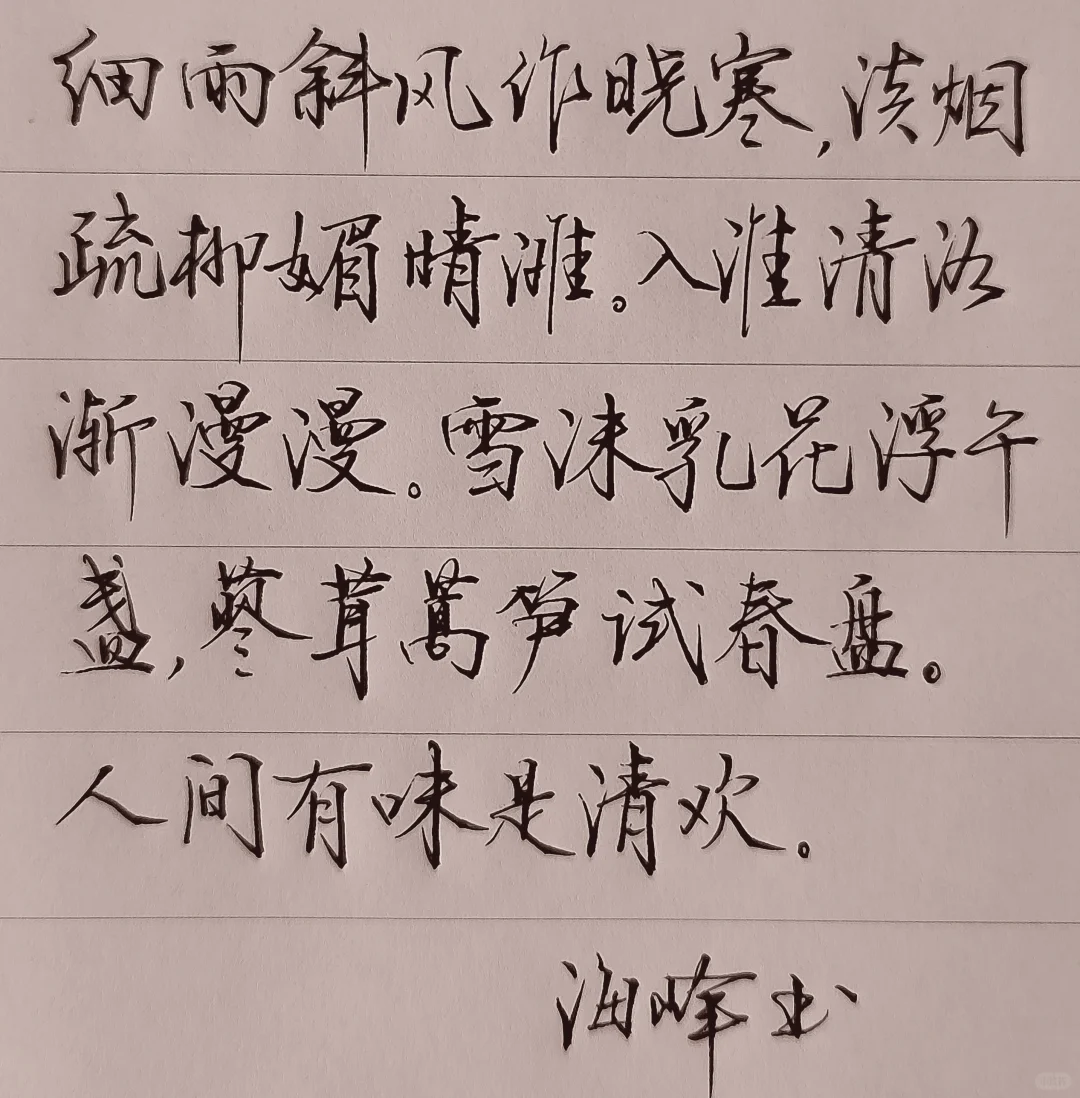 细雨斜风作晓寒,淡烟
疏柳媚晴滩。入淮清洛
渐漫漫。雪沫乳花浮午
盏,蓼茸蒿笋试春盘。
人间有味是清欢。
海峰书